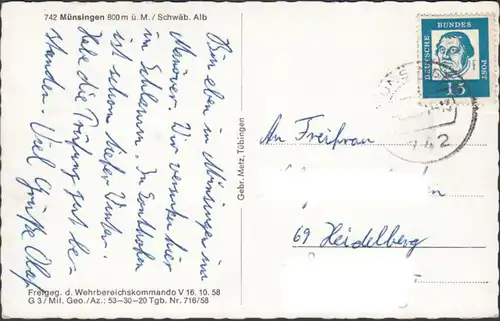 742 Münsingen 800 m ü. M. / Schwäb. Alb
Bin eben in Münsingen im
Manöver. Wir versinken hier
im Schlamm. In Sonthofen
ist schon tiefer Winter.
Habe die Prüfung gut be-
standen. Viel Grüße Olaf
Freigeg. d. Wehrbereichskommando V 16. 10. 58
G 3 / Mil. Geo. / Az.: 53-30-20 Tgb. Nr. 716/58
Gebr. Metz, Tübingen
DEUTSCHE
BUNDES
POST
15
742
An Freifrau
69 Heidelberg